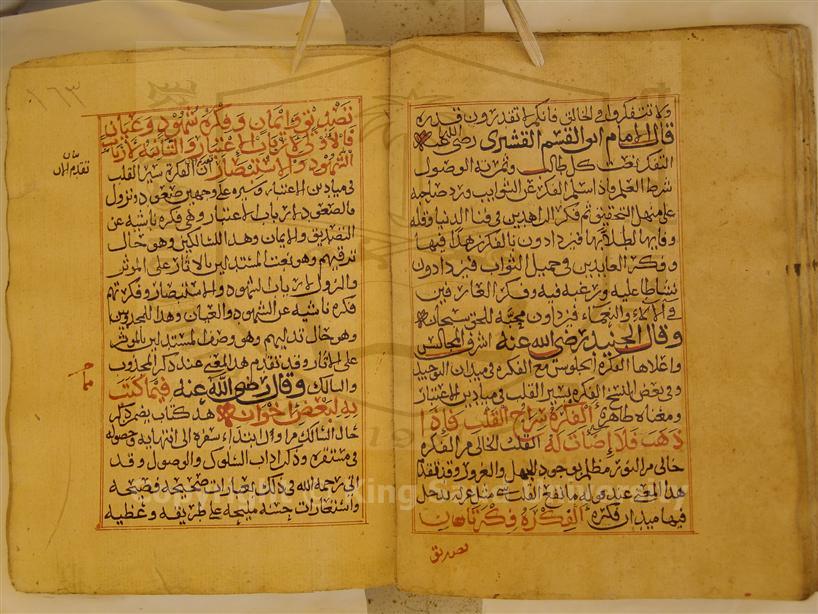 ولا تتفكروا في الخالق فانكم لا تقدرون قدره
قال الامام ابو القسم القشيري رضي الله عنه
التفكر نعت كل طالب وثمرته الوصول
شرط العلم فاذا سلم الفكر عن الشوايب ورد صاحبه
على منهل التحقيق ثم فكر الزاهدين في فنا الدنيا وقله
وفايها لطلابها فيزدادون بالفكر زهدا فيها
وفكر العابدين في جميل الثواب فيزدادون
نشاطا عليه ورغبه فيه وفكر العارفين
في الالاء والنعماء فيزدادون محبة للحق سبحانه
وقال الجنيد رضي الله عنه اشرف المجالس
واعلاها الفكرة الجلوس مع الفكرة في ميدان التوحيد
وفي بعض النسخ الفكرة سير القلب في ميادين الاعتبار
ومعناه ظاهر الفكرة سراج القلب فاذا
ذهبت فلا اضاءة له القلب الخالي من الفكرة
خالي من النور مظلم بوجود الجهل والغرور وقد تقدم
هذا المعنى عند قوله ما نفع القلب شيء مثل عزلة يدخل
فيها ميدان فكرة الفكرة فكرتان
تصديق
١٦٣
تصديق وايمان وفكرة شهود وعيان
فالاولى لارباب الاعتبار والثانية لارباب
الشهود والاستبصار ان الفكرة سير القلب
في ميادين الاعتبار وسيره على وجهين صعود ونزول
فالصعود لارباب الاعتبار وهي فكرة ناشيه عن
التصديق والايمان وهذا للسالكين وهو حال
ترقيهم وهو نعت المستدلين بالاثار على الموثر
والنزول لارباب الشهود والاستبصار وفكرتهم
فكرة ناشيه عن الشهود والعيان وهذا للمجذوبين
وهو حال تدليهم وهو وصف المستدلين بالموثر
على الاثار وقد تقدم هذا المعنى عند ذكر المجذوب
والسالك وقال رضي الله عنه فيما كتب
به لبعض اخوانه هذا كتاب يضمن ذكر
حال السالك من اول ابتداء سفره الى انتهايه وحصوله
في مستقره وذكر اداب السلوك والوصول وقد
اتى رحمه الله في ذلك بعبارات صحيحه فصيحه
واستعارات حسنه مليحه على طريقه وعظيه
Copyright © King Saud University